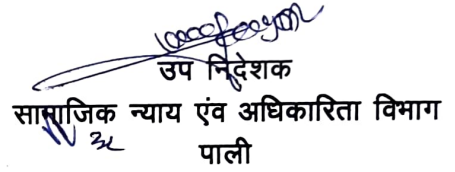 उप निदेशक
सामाजिक न्याय एंव अधिकारिता विभाग
पाली